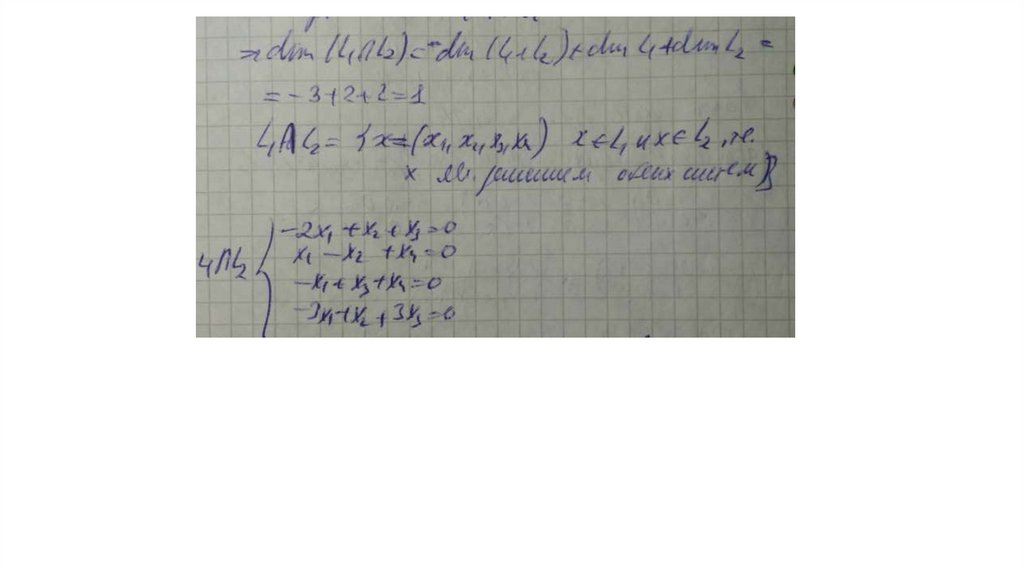 => dim (L₁∩L₂) = -dim (L₁+L₂) + dim L₁ + dim L₂ =
= -3+2+2=1
L₁∩L₂ = {x=(x₁, x₂, x₃, x₄) x∈L₁ и x∈L₂, т.е.
x яв. решением обеих систем}
-2x₁ + x₂ + x₃ = 0
x₁ - x₂ + x₄ = 0
L₁∩L₂ {
-x₁ + x₃ + x₄ = 0
-3x₁ + x₂ + 3x₃ = 0